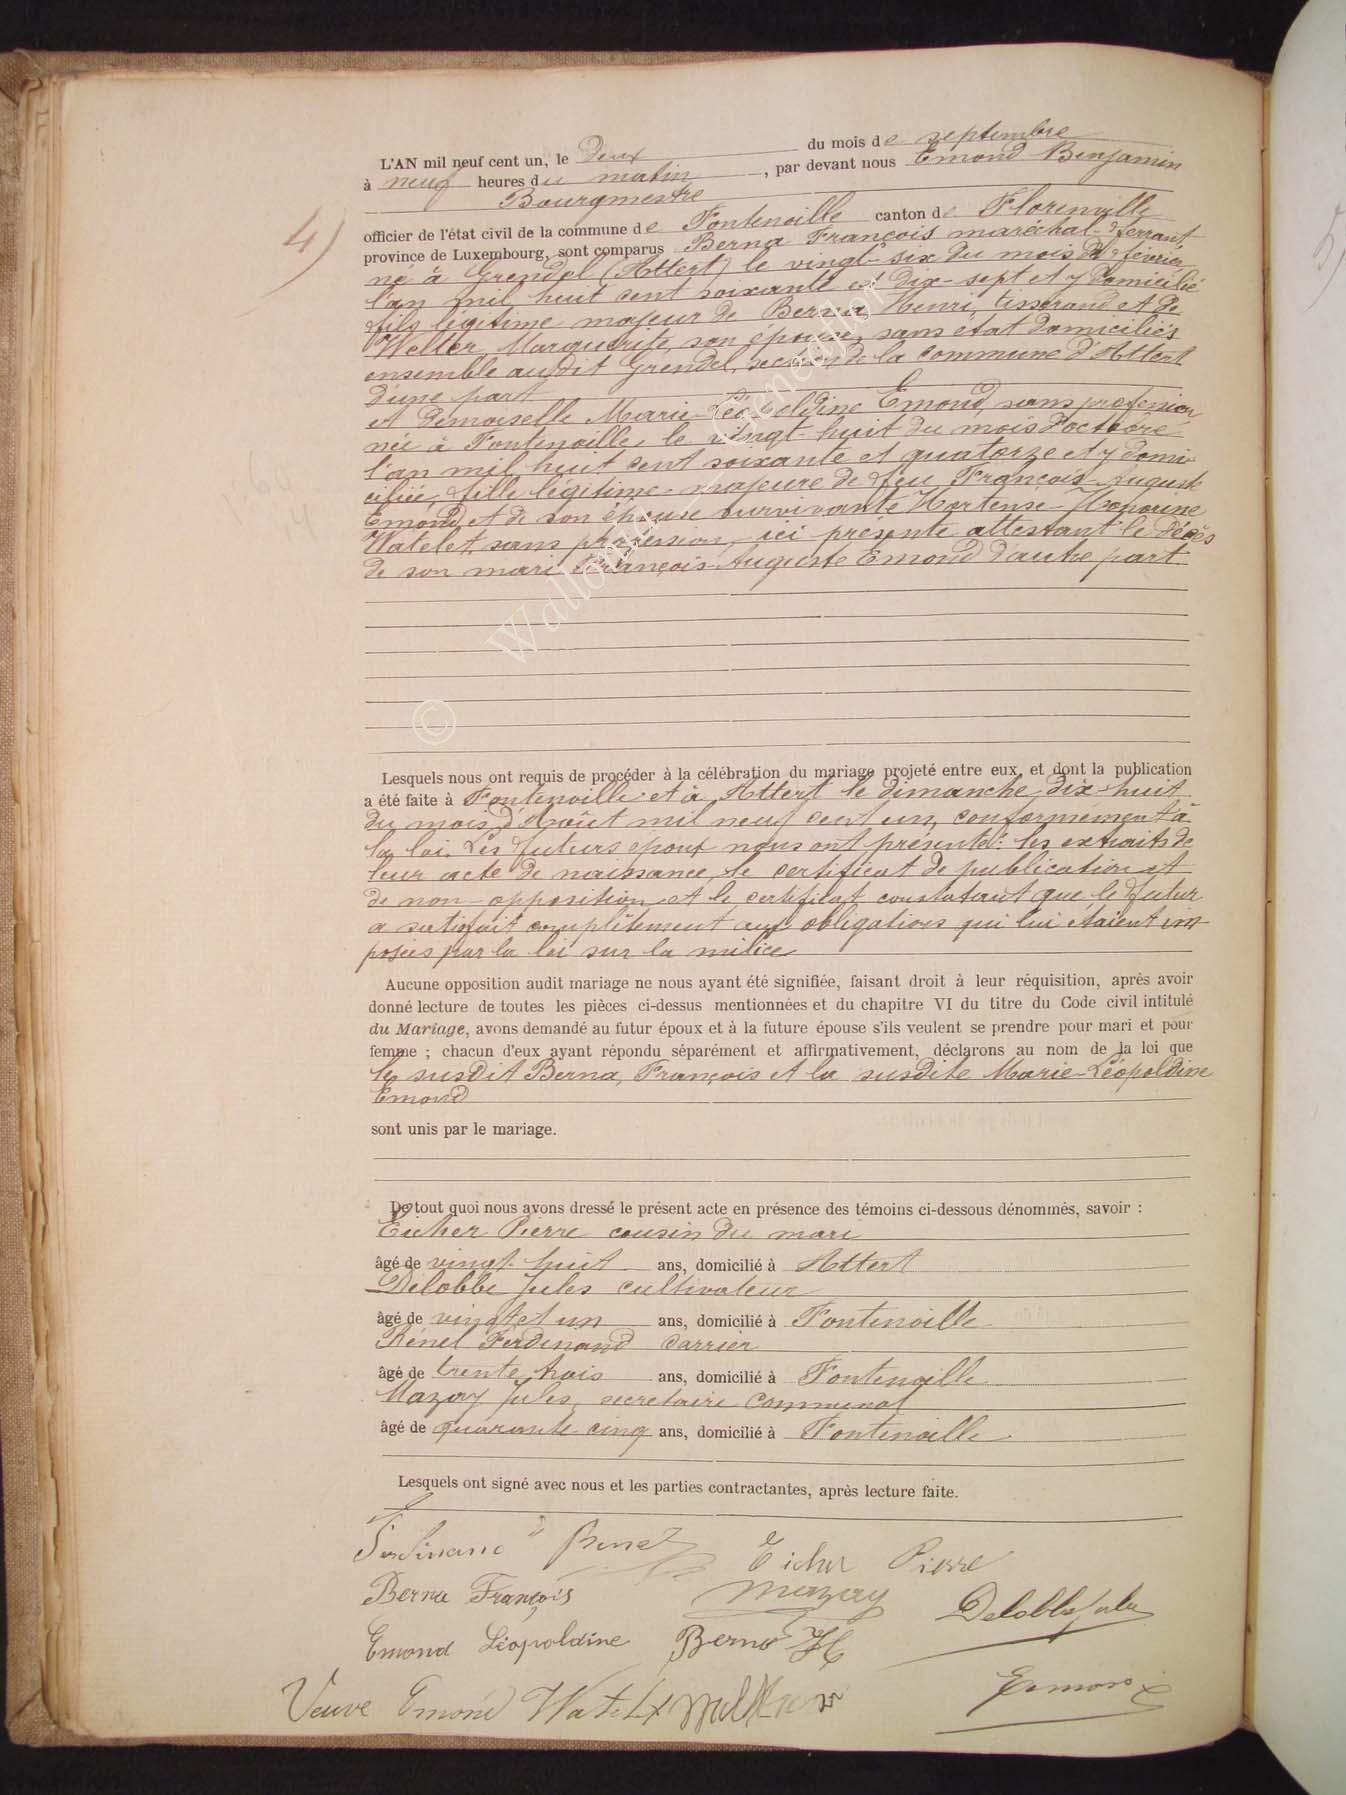 L'AN mil neuf cent un, le Deux du mois de septembre
à neuf heures du matin, par devant nous Emond Benjamin
Bourgmestre
4)
officier de l'état civil de la commune de Fontenoille canton de Florenville
province de Luxembourg, sont comparus Berna François maréchal-ferrant
né à Grendel (Attert) le vingt-six du mois de février
l'an mil huit cent soixante et dix-sept et y domicilié
fils légitime majeur de Berna Henri, tisserand et de
Welter Marguerite son épouse, sans état domiciliés
ensemble audit Grendel, section de la commune d'Attert
d'une part
et Demoiselle Marie-Léopoldine Emond, sans profession
née à Fontenoille, le vingt-huit du mois d'octobre
l'an mil huit cent soixante et quatorze et y domi-
ciliée, fille légitime majeure de feu François-Auguste
Emond, et de son épouse survivante Hortense-Honorine
Watelet, sans profession, ici présente attestant le décès
de son mari François-Auguste Emond d'autre part
© Wallonia Geneaflor
Lesquels nous ont requis de procéder à la célébration du mariage projeté entre eux, et dont la publication
a été faite à Fontenoille et à Attert le dimanche dix-huit
du mois d'Août mil neuf cent un, conformément à
la loi. Les futurs époux nous ont présenté: les extraits de
leur acte de naissance, le certificat de publication et
de non-opposition et le certificat constatant que le futur
a satisfait complètement aux obligations qui lui étaient im-
posées par la loi sur la milice
Aucune opposition audit mariage ne nous ayant été signifiée, faisant droit à leur réquisition, après avoir
donné lecture de toutes les pièces ci-dessus mentionnées et du chapitre VI du titre du Code civil intitulé
du Mariage, avons demandé au futur époux et à la future épouse s'ils veulent se prendre pour mari et pour
femme ; chacun d'eux ayant répondu séparément et affirmativement, déclarons au nom de la loi que
le susdit Berna, François et la susdite Marie-Léopoldine
Emond
sont unis par le mariage.
De tout quoi nous avons dressé le présent acte en présence des témoins ci-dessous dénommés, savoir :
Eicher Pierre cousin du mari
âgé de vingt-huit ans, domicilié à Attert
Delobbe Jules cultivateur
âgé de vingt et un ans, domicilié à Fontenoille
Rénel Ferdinand carrier
âgé de trente trois ans, domicilié à Fontenoille
Mazay Jules, secrétaire communal
âgé de quarante cinq ans, domicilié à Fontenoille
Lesquels ont signé avec nous et les parties contractantes, après lecture faite.
Ferdinand Renel Eicher Pierre
Berna François Mazay Delobbe Jules
Emond Léopoldine Berna H
Veuve Emond Watelet Emond